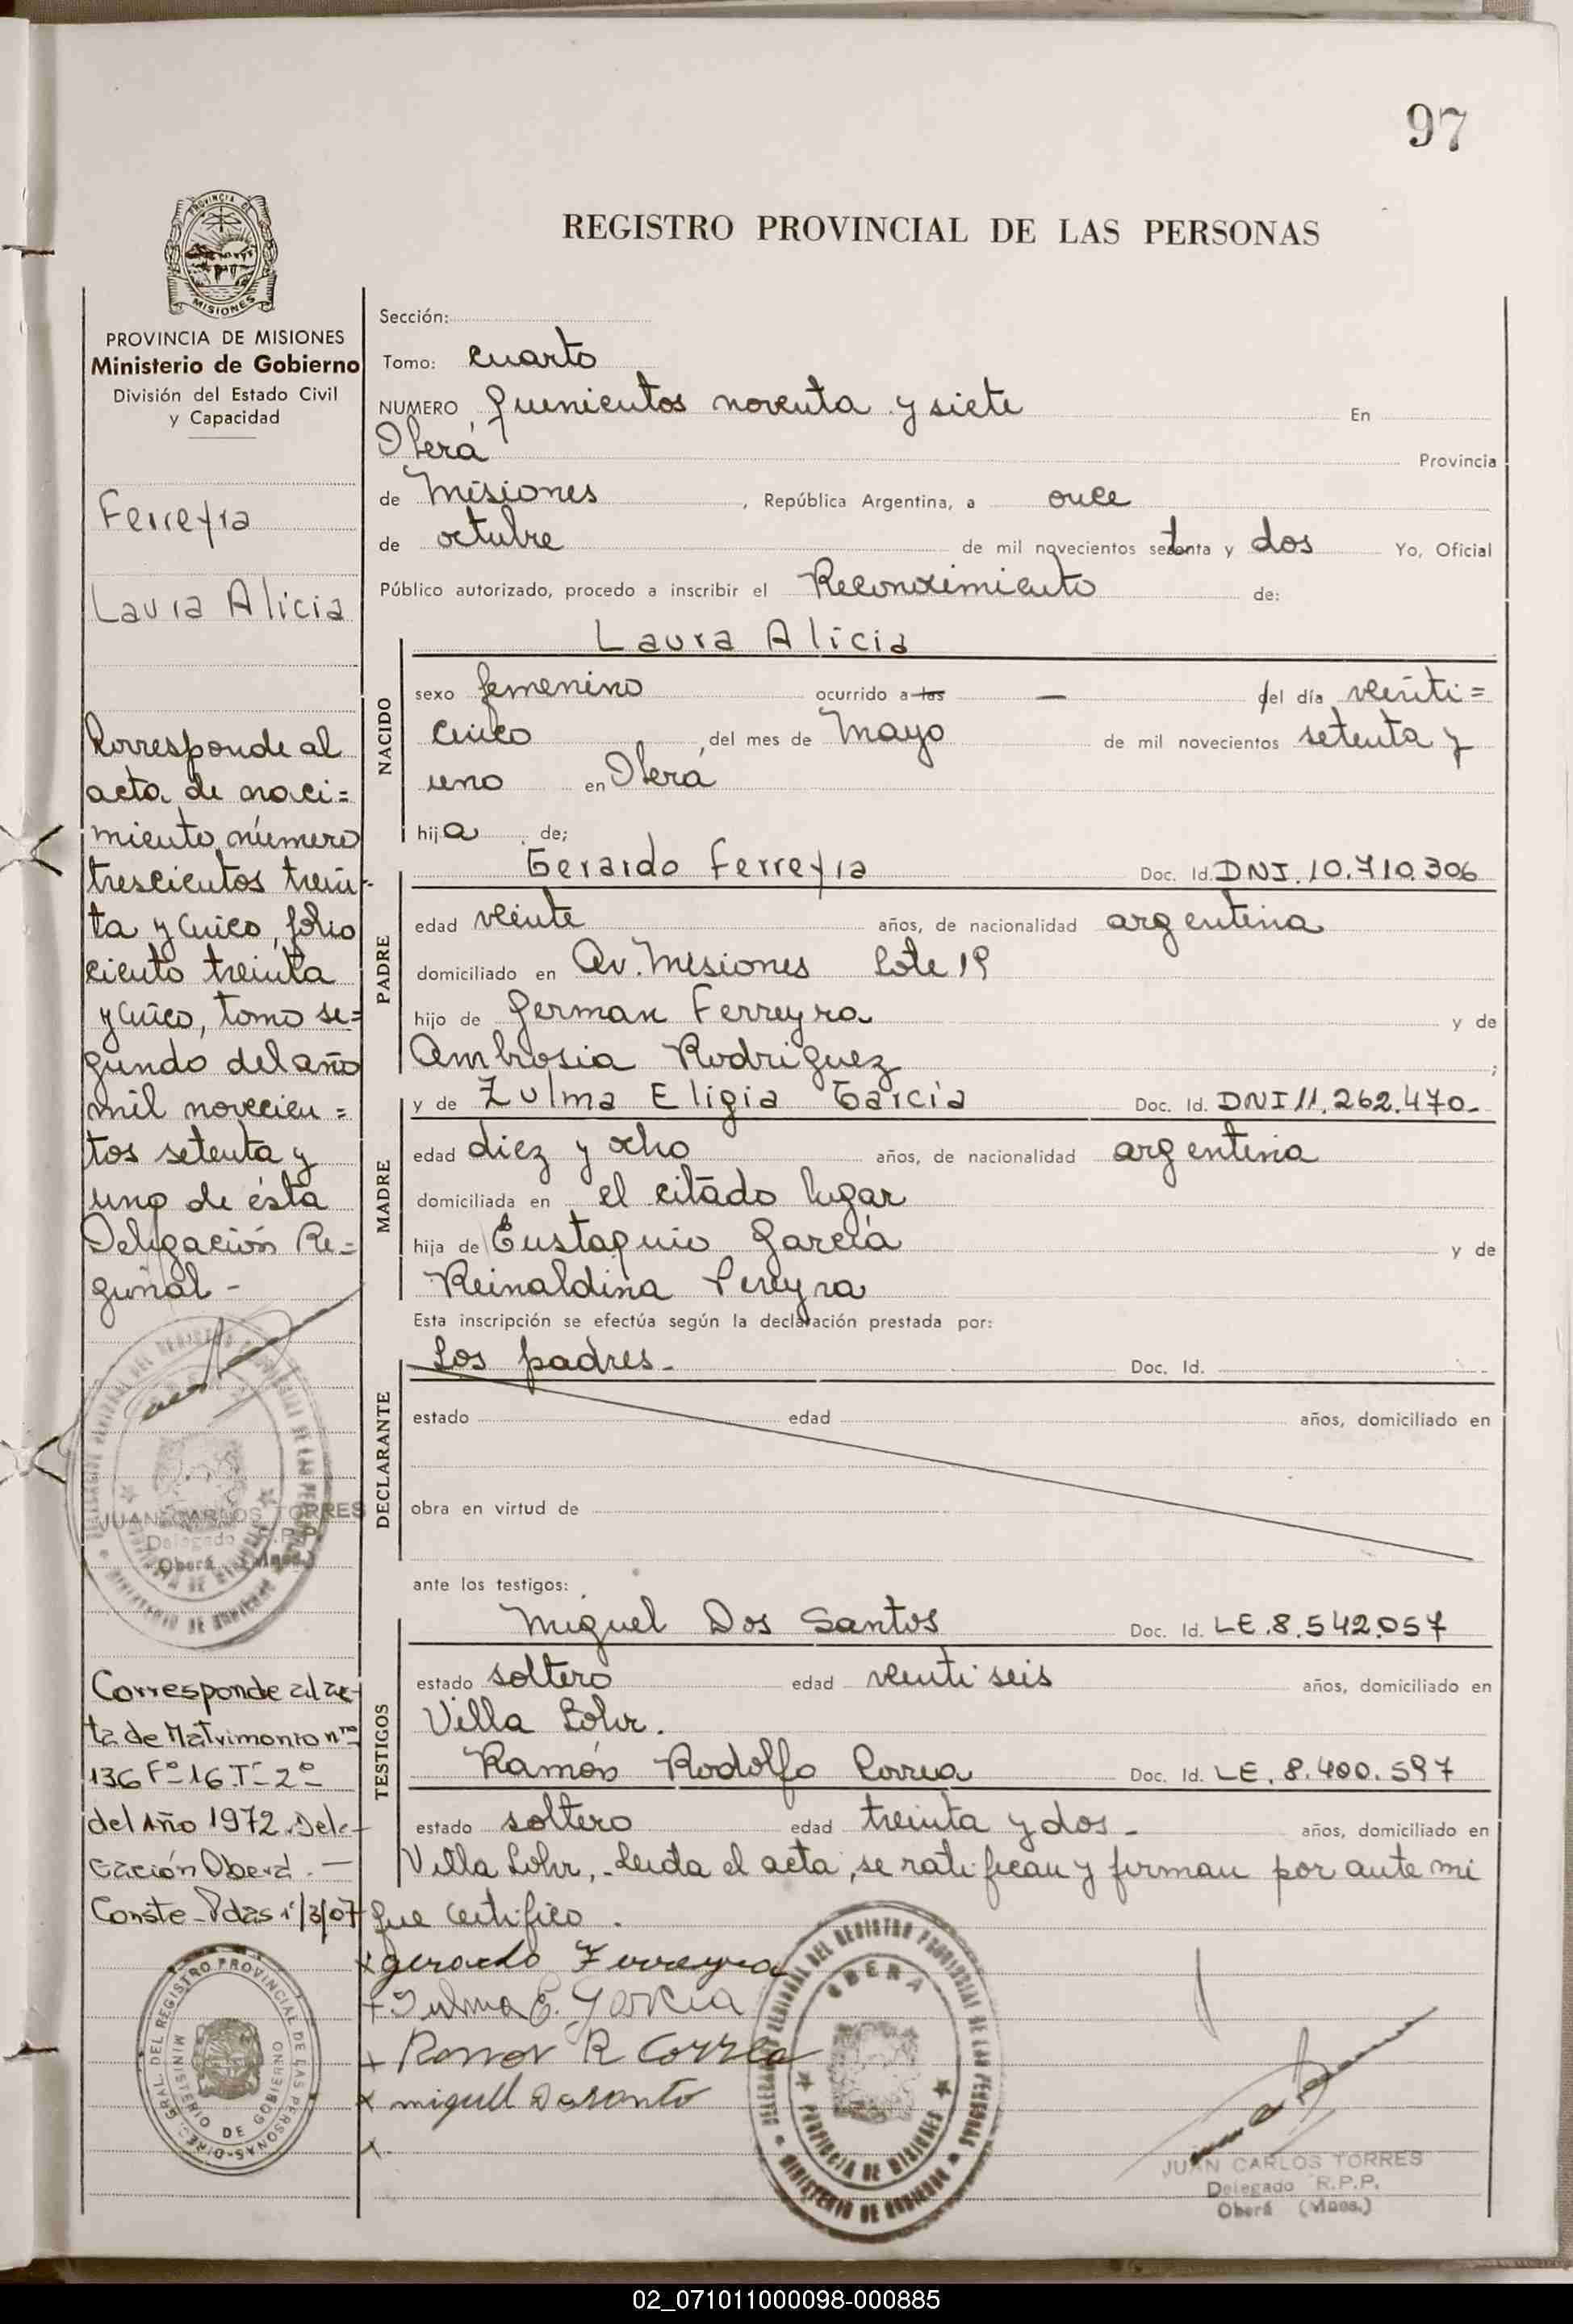 97
PROVINCIA DE
MISIONES
REGISTRO PROVINCIAL DE LAS PERSONAS
PROVINCIA DE MISIONES
Ministerio de Gobierno
División del Estado Civil
y Capacidad
Ferreyra
Laura Alicia
Corresponde al
acta de naci=
miento número
trescientos trein-
ta y cinco, folio
ciento treinta
y cinco, tomo se=
gundo del año
mil novecien=
tos setenta y
uno de ésta
Delegación Re=
gional -
JUAN CARLOS TORRES
Delegado R.P.P.
Oberá (Mnes.)
Corresponde al ac-
ta de Matrimonio nro
136 Fº-16 Tº-2º-
del Año 1972. Dele-
gación Oberá. —
Conste-Pdas 1/3/07
DIREC. GRAL. DEL REGISTRO PROVINCIAL DE LAS PERSONAS
MINISTERIO DE GOBIERNO
Sección:
Tomo: cuarto
NUMERO quinientos noventa y siete En
Oberá Provincia
de Misiones, República Argentina, a once
de octubre de mil novecientos setenta y dos Yo, Oficial
Público autorizado, procedo a inscribir el Reconocimiento de:
NACIDO
Laura Alicia
sexo femenino ocurrido a las — del día veinti=
cinco del mes de Mayo de mil novecientos setenta y
uno en Oberá
hija de;
PADRE
Gerardo Ferreyra Doc. Id. DNI. 10.710.306
edad veinte años, de nacionalidad argentina
domiciliado en Av. Misiones Lote 19
hijo de German Ferreyra y de
Ambrosia Rodriguez ;
MADRE
y de Zulma Eligia García Doc. Id. DNI 11.262.470-
edad diez y ocho años, de nacionalidad argentina
domiciliada en el citado lugar
hija de Eustaquio García y de
Reinaldina Pereyra
Esta inscripción se efectúa según la declaración prestada por:
DECLARANTE
Los padres- Doc. Id.
estado edad años, domiciliado en
obra en virtud de
ante los testigos:
TESTIGOS
Miguel Dos Santos Doc. Id. LE.8.542.057
estado soltero edad veinti seis años, domiciliado en
Villa Lohr.
Ramón Rodolfo Correa Doc. Id. LE. 8.400.597
estado soltero edad treinta y dos- años, domiciliado en
Villa Lohr,- Leida el acta, se ratifican y firman por ante mi
que certifico.
x gerardo Ferreyra
+ Zulma E. Garcia
+ Ramon R Correa
x miguel Dosanto
x
DELEGACION REGIONAL DEL REGISTRO PROVINCIAL DE LAS PERSONAS
OBERA
PROVINCIA DE MISIONES
MINISTERIO DE GOBIERNO
JUAN CARLOS TORRES
Delegado R.P.P.
Oberá (Mnes.)
02_071011000098-000885